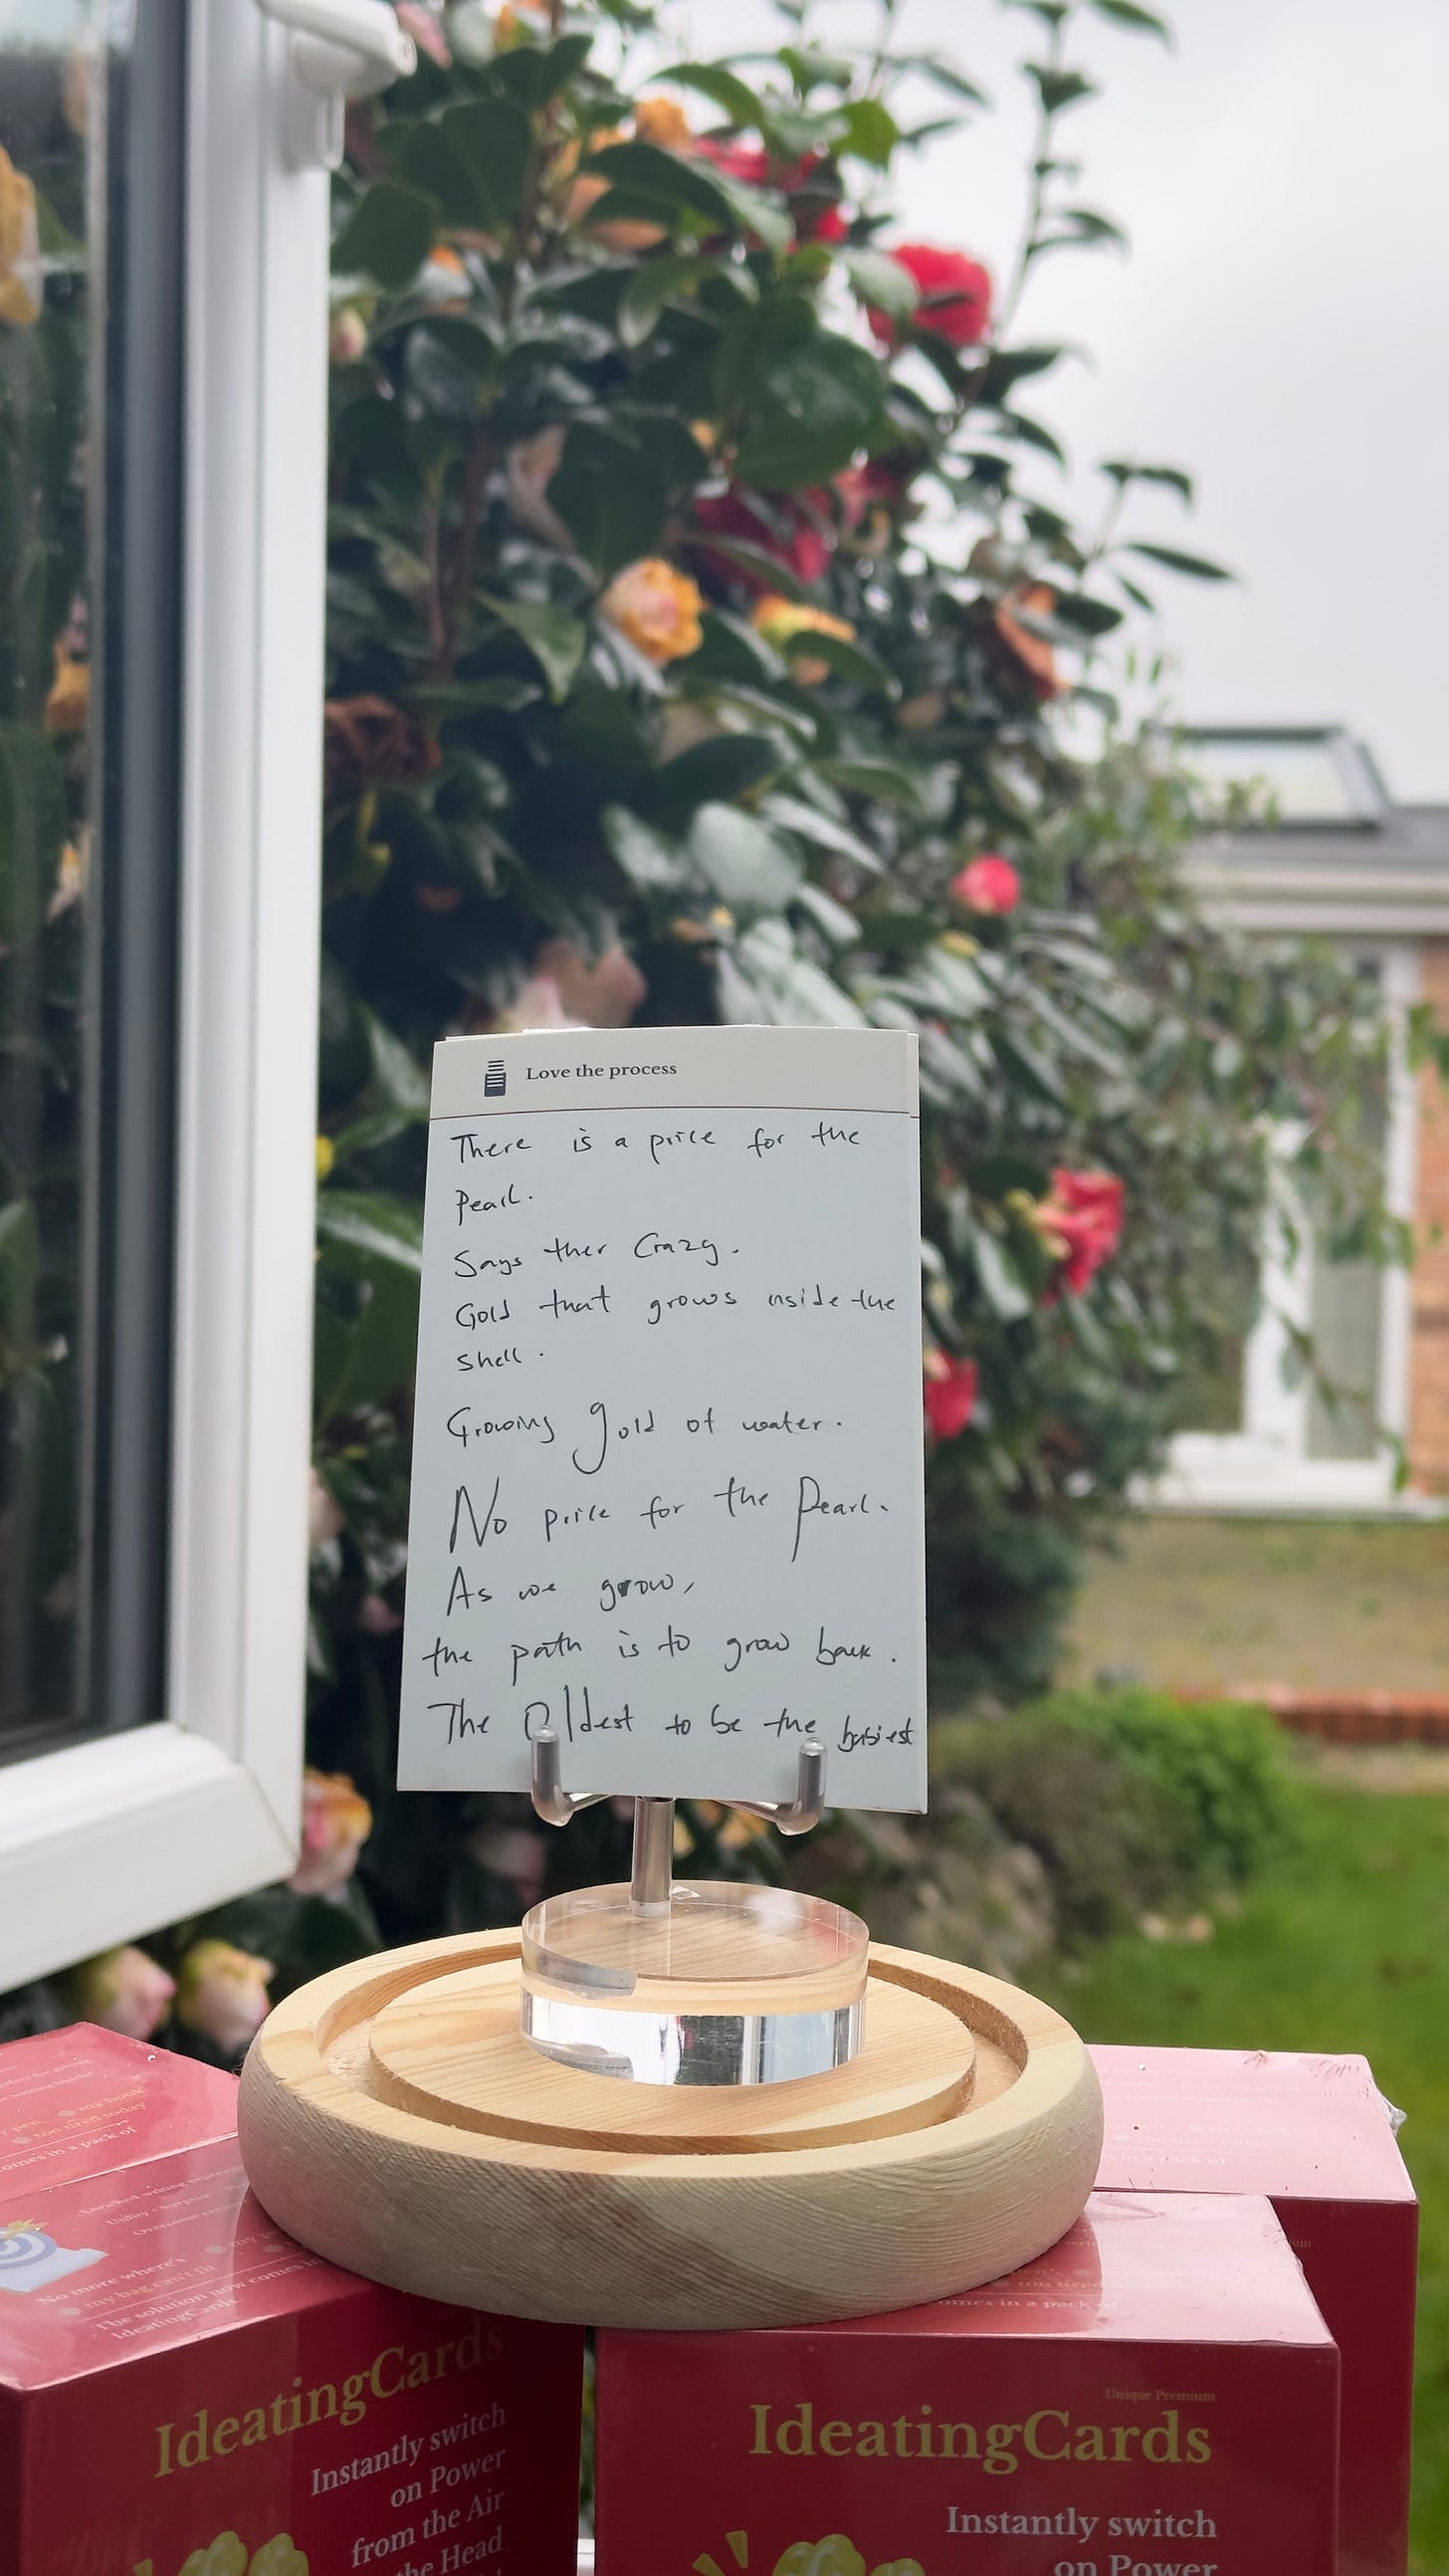 Love the process
There is a price for the
Pearl.
Says ther Crazy.
Gold that grows inside the
shell.
Growing gold of water.
No price for the Pearl.
As we grow,
the path is to grow back.
The Oldest to be the babiest
pen
my book
too tired today
comes in a pack of
No more where's
my bag can't fit
The solution now comes
IdeatingCards
IdeatingCards
Instantly switch
on Power
from the Air
the Head
too tired today
comes in a pack of
Unique Premium
IdeatingCards
Instantly switch
on Power